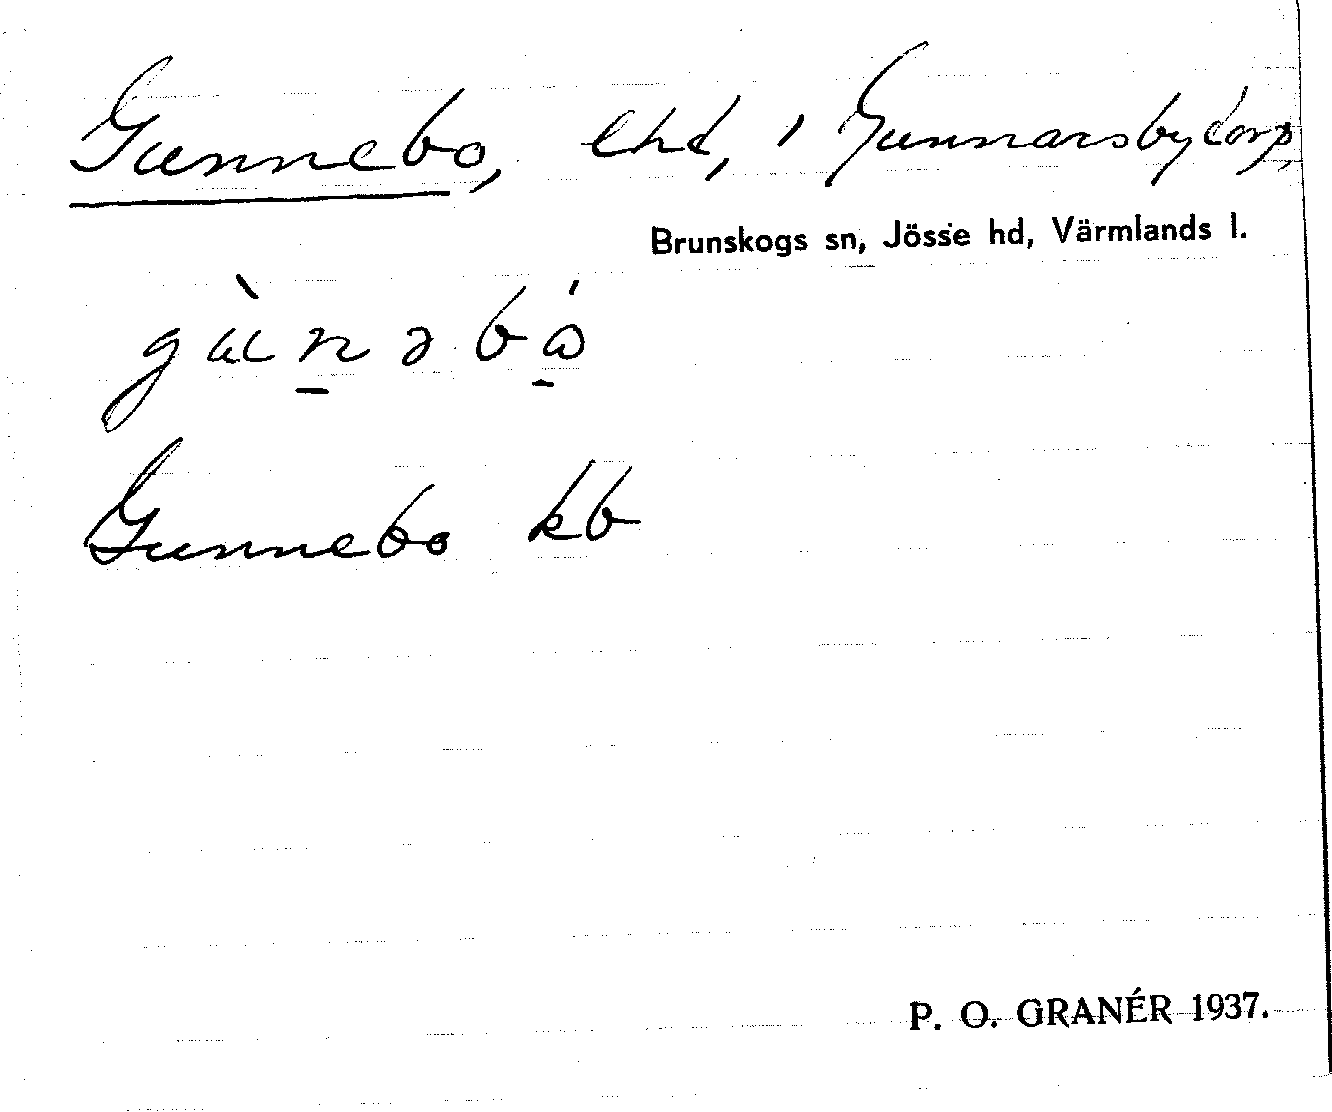 Gunnebo, lhd, i Gunnarsbytorp,
Brunskogs sn, Jösse hd, Värmlands l.
Gunnebo kb
P. O. GRANÉR 1937.